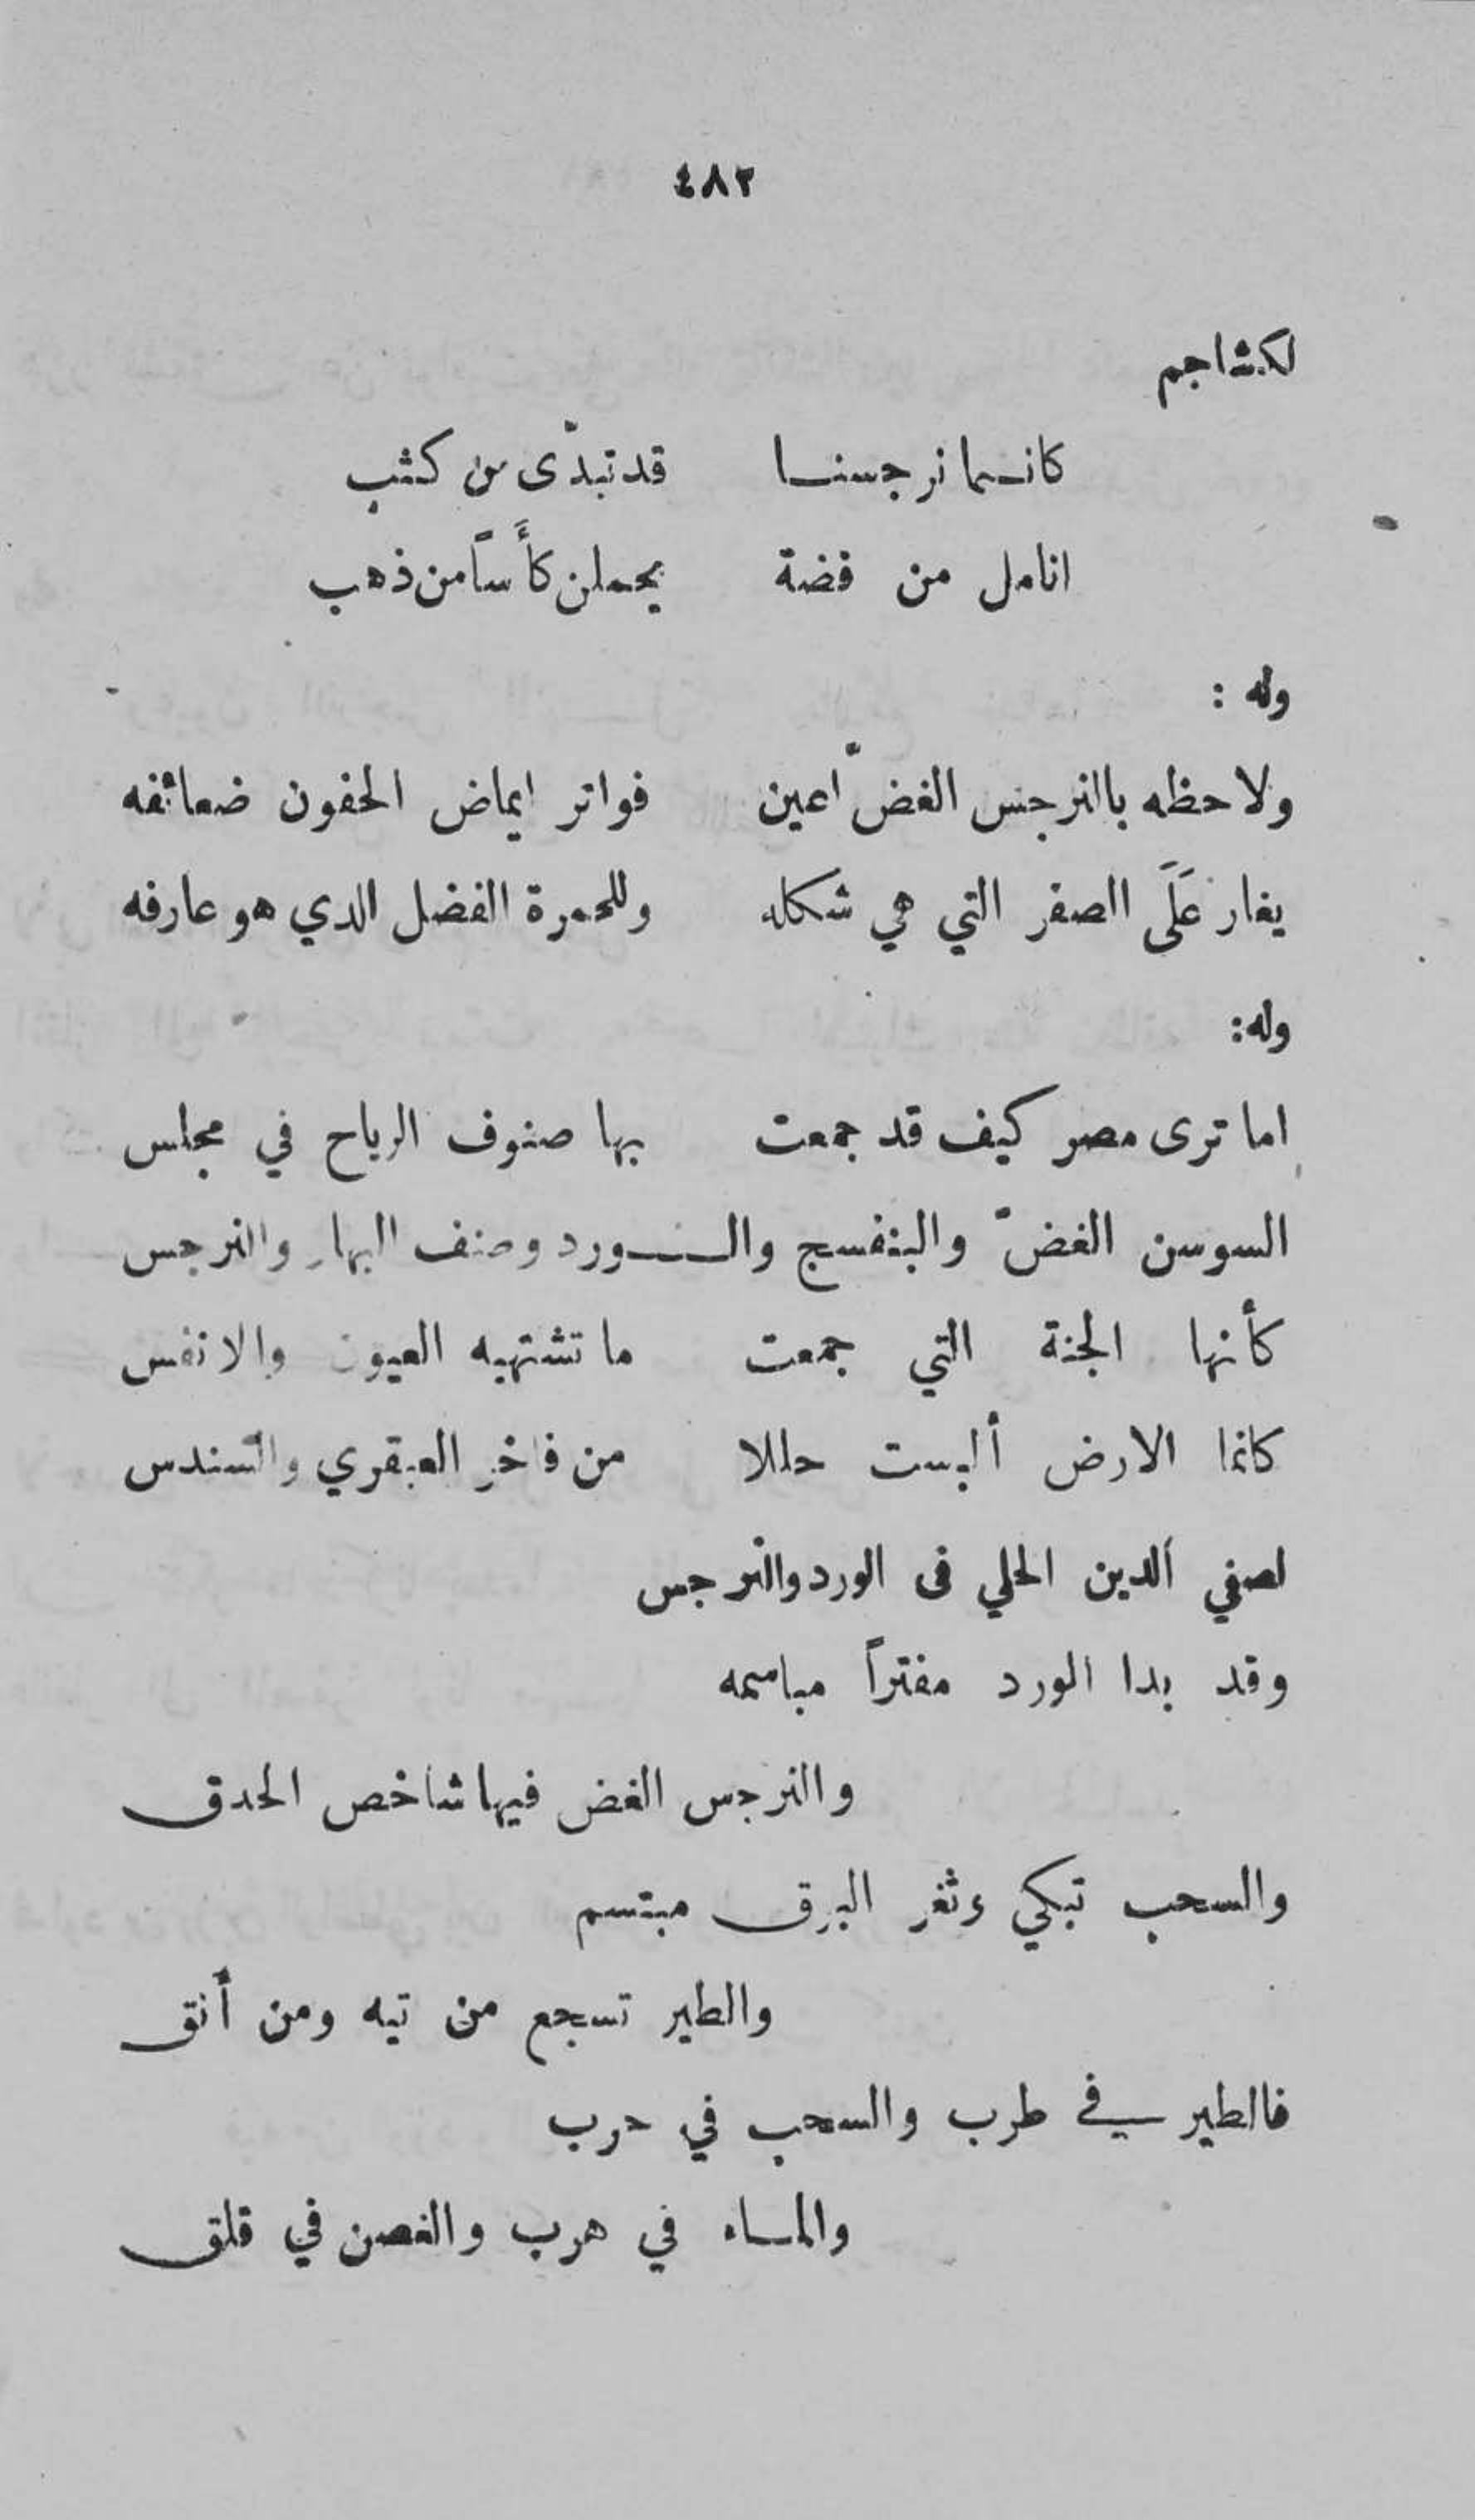 ٤٨٢
لكشاجم
كانما نرجسنا قد تبدّى من كثب
انامل من فضة يحملن كأساً من ذهب
وله :
ولاحظه بالنرجس الغضّ اعين فواتر ايماض الحفون ضعائفه
يغار عَلَى الصفر التي هي شكله وللحمرة الفضل الدي هو عارفه
وله:
اما ترى مصر كيف قد جمعت بها صنوف الرياح في مجلس
السوسن الغضّ والبنفسج والورد وصنف البهار والنرجس
كأنها الجنة التي جمعت ما تشتهيه العيون والانفس
كانما الارض ألبست حللا من فاخر العبقري والسندس
لصفي الدين الحلي في الورد والنرجس
وقد بدا الورد مفتراً مباسمه
والنرجس الغض فيها شاخص الحدق
والسحب تبكي وثغر البرق مبتسم
والطير تسجع من تيه ومن أنق
فالطير في طرب والسحب في حرب
والماء في هرب والغصن في قلق